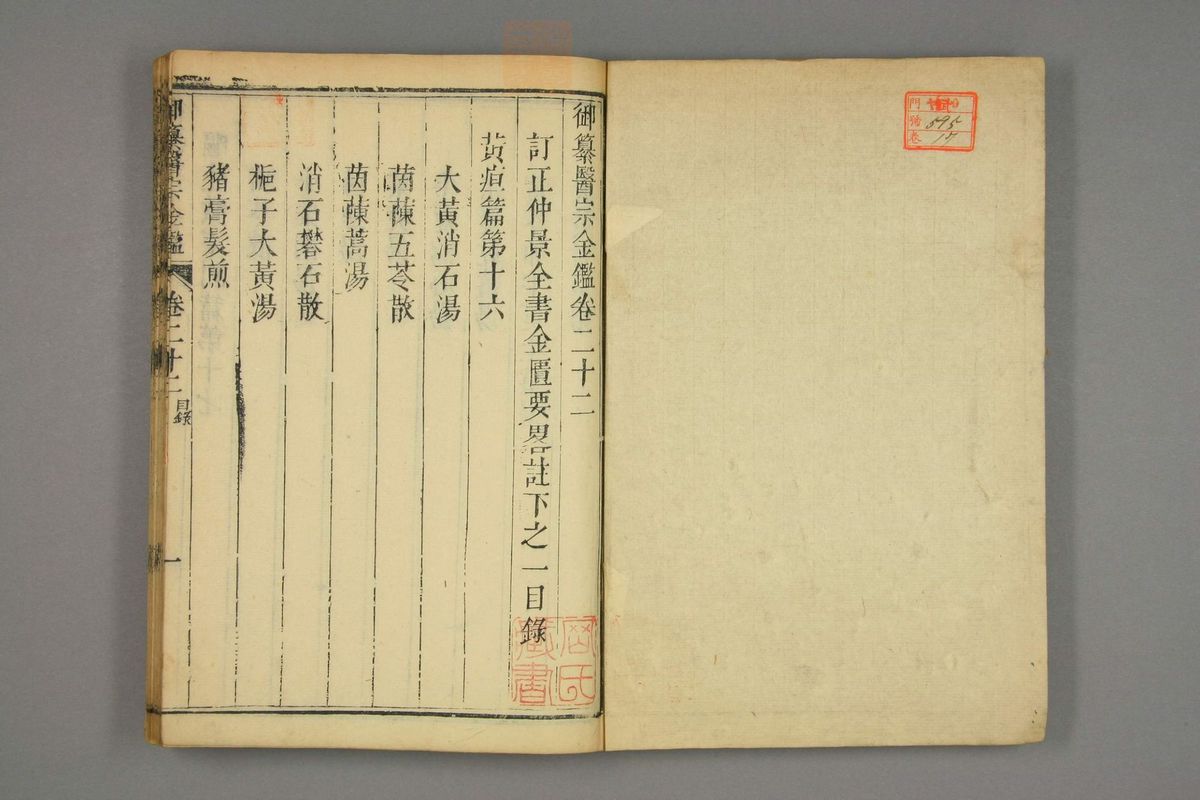 御纂醫宗金鑑卷二十二
訂正仲景全書金匱要畧註下之一目錄
黃疸篇第十六
大黃消石湯
茵蔯五苓散
茵蔯蒿湯
消石礬石散
梔子大黃湯
豬膏髮煎
御纂醫宗金鑑 卷二十二 目錄 一
門
號 595
卷 17
藏書
氏